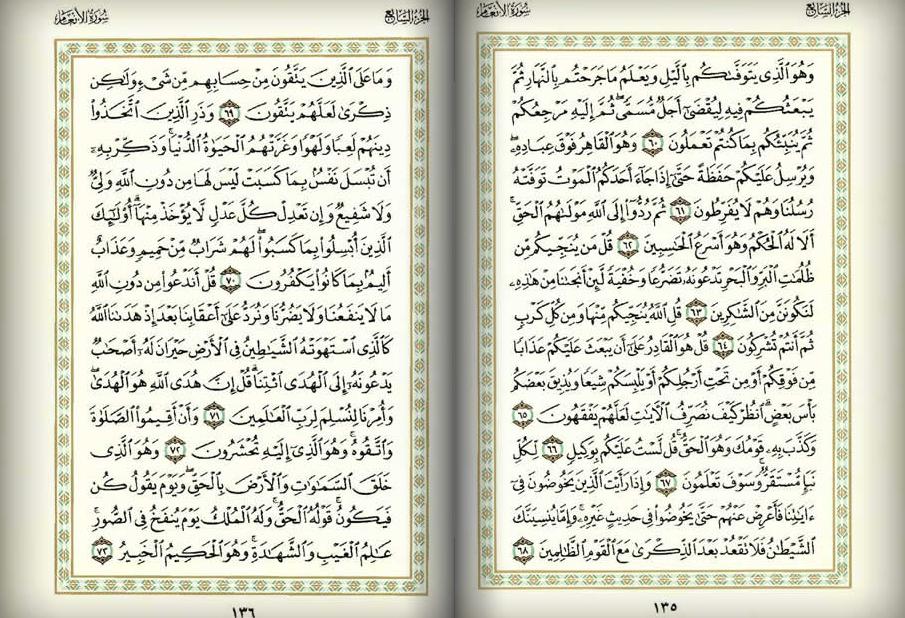 الجزء السابع
سورة الأنعام
وَهُوَ الَّذِي يَتَوَفَّىٰكُم بِالَّيْلِ وَيَعْلَمُ مَا جَرَحْتُم بِالنَّهَارِ ثُمَّ
يَبْعَثُكُمْ فِيهِ لِيُقْضَىٰٓ أَجَلٌ مُّسَمًّى ۖ ثُمَّ إِلَيْهِ مَرْجِعُكُمْ
ثُمَّ يُنَبِّئُكُم بِمَا كُنتُمْ تَعْمَلُونَ ٦٠ وَهُوَ الْقَاهِرُ فَوْقَ عِبَادِهِۦ ۖ
وَيُرْسِلُ عَلَيْكُمْ حَفَظَةً حَتَّىٰٓ إِذَا جَآءَ أَحَدَكُمُ الْمَوْتُ تَوَفَّتْهُ
رُسُلُنَا وَهُمْ لَا يُفَرِّطُونَ ٦١ ثُمَّ رُدُّوٓا۟ إِلَى اللَّهِ مَوْلَىٰهُمُ الْحَقِّ ۚ
أَلَا لَهُ الْحُكْمُ وَهُوَ أَسْرَعُ الْحَٰسِبِينَ ٦٢ قُلْ مَن يُنَجِّيكُم مِّن
ظُلُمَٰتِ الْبَرِّ وَالْبَحْرِ تَدْعُونَهُۥ تَضَرُّعًا وَخُفْيَةً لَّئِنْ أَنجَىٰنَا مِنْ هَٰذِهِۦ
لَنَكُونَنَّ مِنَ الشَّٰكِرِينَ ٦٣ قُلِ اللَّهُ يُنَجِّيكُم مِّنْهَا وَمِن كُلِّ كَرْبٍ
ثُمَّ أَنتُمْ تُشْرِكُونَ ٦٤ قُلْ هُوَ الْقَادِرُ عَلَىٰٓ أَن يَبْعَثَ عَلَيْكُمْ عَذَابًا
مِّن فَوْقِكُمْ أَوْ مِن تَحْتِ أَرْجُلِكُمْ أَوْ يَلْبِسَكُمْ شِيَعًا وَيُذِيقَ بَعْضَكُم
بَأْسَ بَعْضٍ ۗ انظُرْ كَيْفَ نُصَرِّفُ الْءَايَٰتِ لَعَلَّهُمْ يَفْقَهُونَ ٦٥
وَكَذَّبَ بِهِۦ قَوْمُكَ وَهُوَ الْحَقُّ ۚ قُل لَّسْتُ عَلَيْكُم بِوَكِيلٍ ٦٦ لِّكُلِّ
نَبَإٍ مُّسْتَقَرٌّ ۚ وَسَوْفَ تَعْلَمُونَ ٦٧ وَإِذَا رَأَيْتَ الَّذِينَ يَخُوضُونَ فِىٓ
ءَايَٰتِنَا فَأَعْرِضْ عَنْهُمْ حَتَّىٰ يَخُوضُوا۟ فِى حَدِيثٍ غَيْرِهِۦ ۚ وَإِمَّا يُنسِيَنَّكَ
الشَّيْطَٰنُ فَلَا تَقْعُدْ بَعْدَ الذِّكْرَىٰ مَعَ الْقَوْمِ الظَّٰلِمِينَ ٦٨
١٣٥
الجزء السابع
سورة الأنعام
وَمَا عَلَى الَّذِينَ يَتَّقُونَ مِنْ حِسَابِهِم مِّن شَىْءٍ وَلَٰكِن
ذِكْرَىٰ لَعَلَّهُمْ يَتَّقُونَ ٦٩ وَذَرِ الَّذِينَ اتَّخَذُوا۟
دِينَهُمْ لَعِبًا وَلَهْوًا وَغَرَّتْهُمُ الْحَيَوٰةُ الدُّنْيَا ۚ وَذَكِّرْ بِهِۦٓ
أَن تُبْسَلَ نَفْسٌۢ بِمَا كَسَبَتْ لَيْسَ لَهَا مِن دُونِ اللَّهِ وَلِىٌّ
وَلَا شَفِيعٌ وَإِن تَعْدِلْ كُلَّ عَدْلٍ لَّا يُؤْخَذْ مِنْهَآ ۗ أُو۟لَٰٓئِكَ
الَّذِينَ أُبْسِلُوا۟ بِمَا كَسَبُوا۟ ۖ لَهُمْ شَرَابٌ مِّنْ حَمِيمٍ وَعَذَابٌ
أَلِيمٌۢ بِمَا كَانُوا۟ يَكْفُرُونَ ٧٠ قُلْ أَنَدْعُوا۟ مِن دُونِ اللَّهِ
مَا لَا يَنفَعُنَا وَلَا يَضُرُّنَا وَنُرَدُّ عَلَىٰٓ أَعْقَابِنَا بَعْدَ إِذْ هَدَىٰنَا اللَّهُ
كَالَّذِى اسْتَهْوَتْهُ الشَّيَٰطِينُ فِى الْأَرْضِ حَيْرَانَ لَهُۥٓ أَصْحَٰبٌ
يَدْعُونَهُۥٓ إِلَى الْهُدَى ائْتِنَا ۗ قُلْ إِنَّ هُدَى اللَّهِ هُوَ الْهُدَىٰ ۖ
وَأُمِرْنَا لِنُسْلِمَ لِرَبِّ الْعَٰلَمِينَ ٧١ وَأَنْ أَقِيمُوا۟ الصَّلَوٰةَ
وَاتَّقُوهُ ۚ وَهُوَ الَّذِىٓ إِلَيْهِ تُحْشَرُونَ ٧٢ وَهُوَ الَّذِى
خَلَقَ السَّمَٰوَٰتِ وَالْأَرْضَ بِالْحَقِّ ۖ وَيَوْمَ يَقُولُ كُن
فَيَكُونُ ۚ قَوْلُهُ الْحَقُّ ۚ وَلَهُ الْمُلْكُ يَوْمَ يُنفَخُ فِى الصُّورِ ۚ
عَٰلِمُ الْغَيْبِ وَالشَّهَٰدَةِ ۚ وَهُوَ الْحَكِيمُ الْخَبِيرُ ٧٣
١٣٦